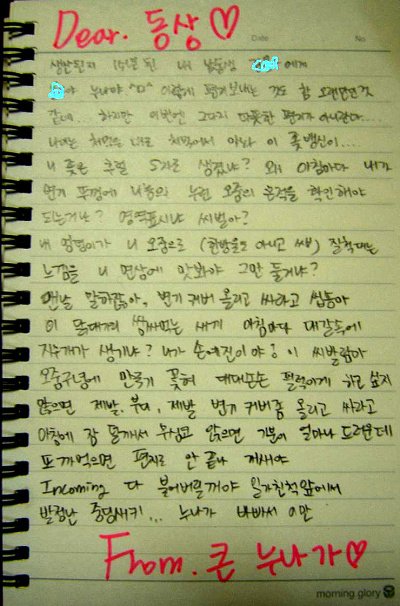 Dear. 동상♡
Date
No
생산된지 15년 된 내 남동생 에게
야 누나야 ^ㅁ^ 이렇게 편지보내는 것도 참 오랜만인것
같네... 하지만 이번엔 그다지 따뜻한 편지가 아니란다...
나이는 쳐먹을 대로 쳐먹어서 아놔 이
니 좆은 추렬 5자로 생겼냐? 왜 아침마다 내가
변기 뚜껑에 니놈의 누런 오줌의 흔적을 확인해야
되는거냐? 영역표시냐 씨벌아?
내 엉덩이가 니 오줌으로 (한방울도 아니고 ) 질척대는
느낌을 니 면상에 맛봐야 그만 둘거냐?
맨날 말하잖아, 변기 커버 올리고 싸라고 씹농아
이 새끼 아침마다 대갈속에
지우개가 생기냐? 내가 손예진이야? 이 씨발람아
오줌구녕에 만국기 꽂혀 대대손손 펄럭이게 하고 싶지
않으면 제발, 부디, 제발 변기 커버좀 올리고 싸라고
아침에 잠 덜깨서 무심코 앉으면 기분이 얼마나 드러운데
또 까먹으면 편지로 안 끝나 개새야
Incoming 다 불어버릴꺼야 일가친척앞에서
발정난 중딩새키... 누나가 바빠서 이만
From. 큰 누나가♡
morning glory